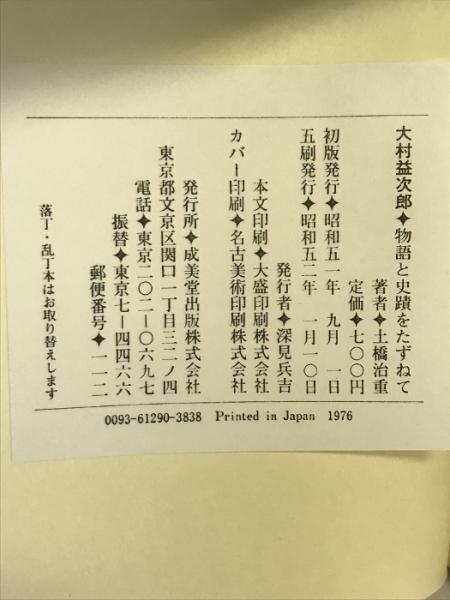 大村益次郎◆物語と史蹟をたずねて
著者◆土橋治重
定価◆七〇〇円
初版発行◆昭和五一年　九月　一日
五刷発行◆昭和五二年　一月一〇日
発行者◆深見兵吉
本文印刷◆大盛印刷株式会社
カバー印刷◆名古美術印刷株式会社
発行所◆成美堂出版株式会社
東京都文京区関口一丁目三二ノ四
電話◆東京二〇二―〇六九七
振替◆東京七―四四六六
郵便番号◆一一二
落丁・乱丁本はお取り替えします
0093-61290-3838 Printed in Japan 1976